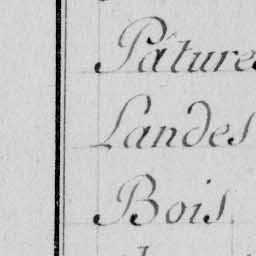 Pâtures
Landes
Bois.